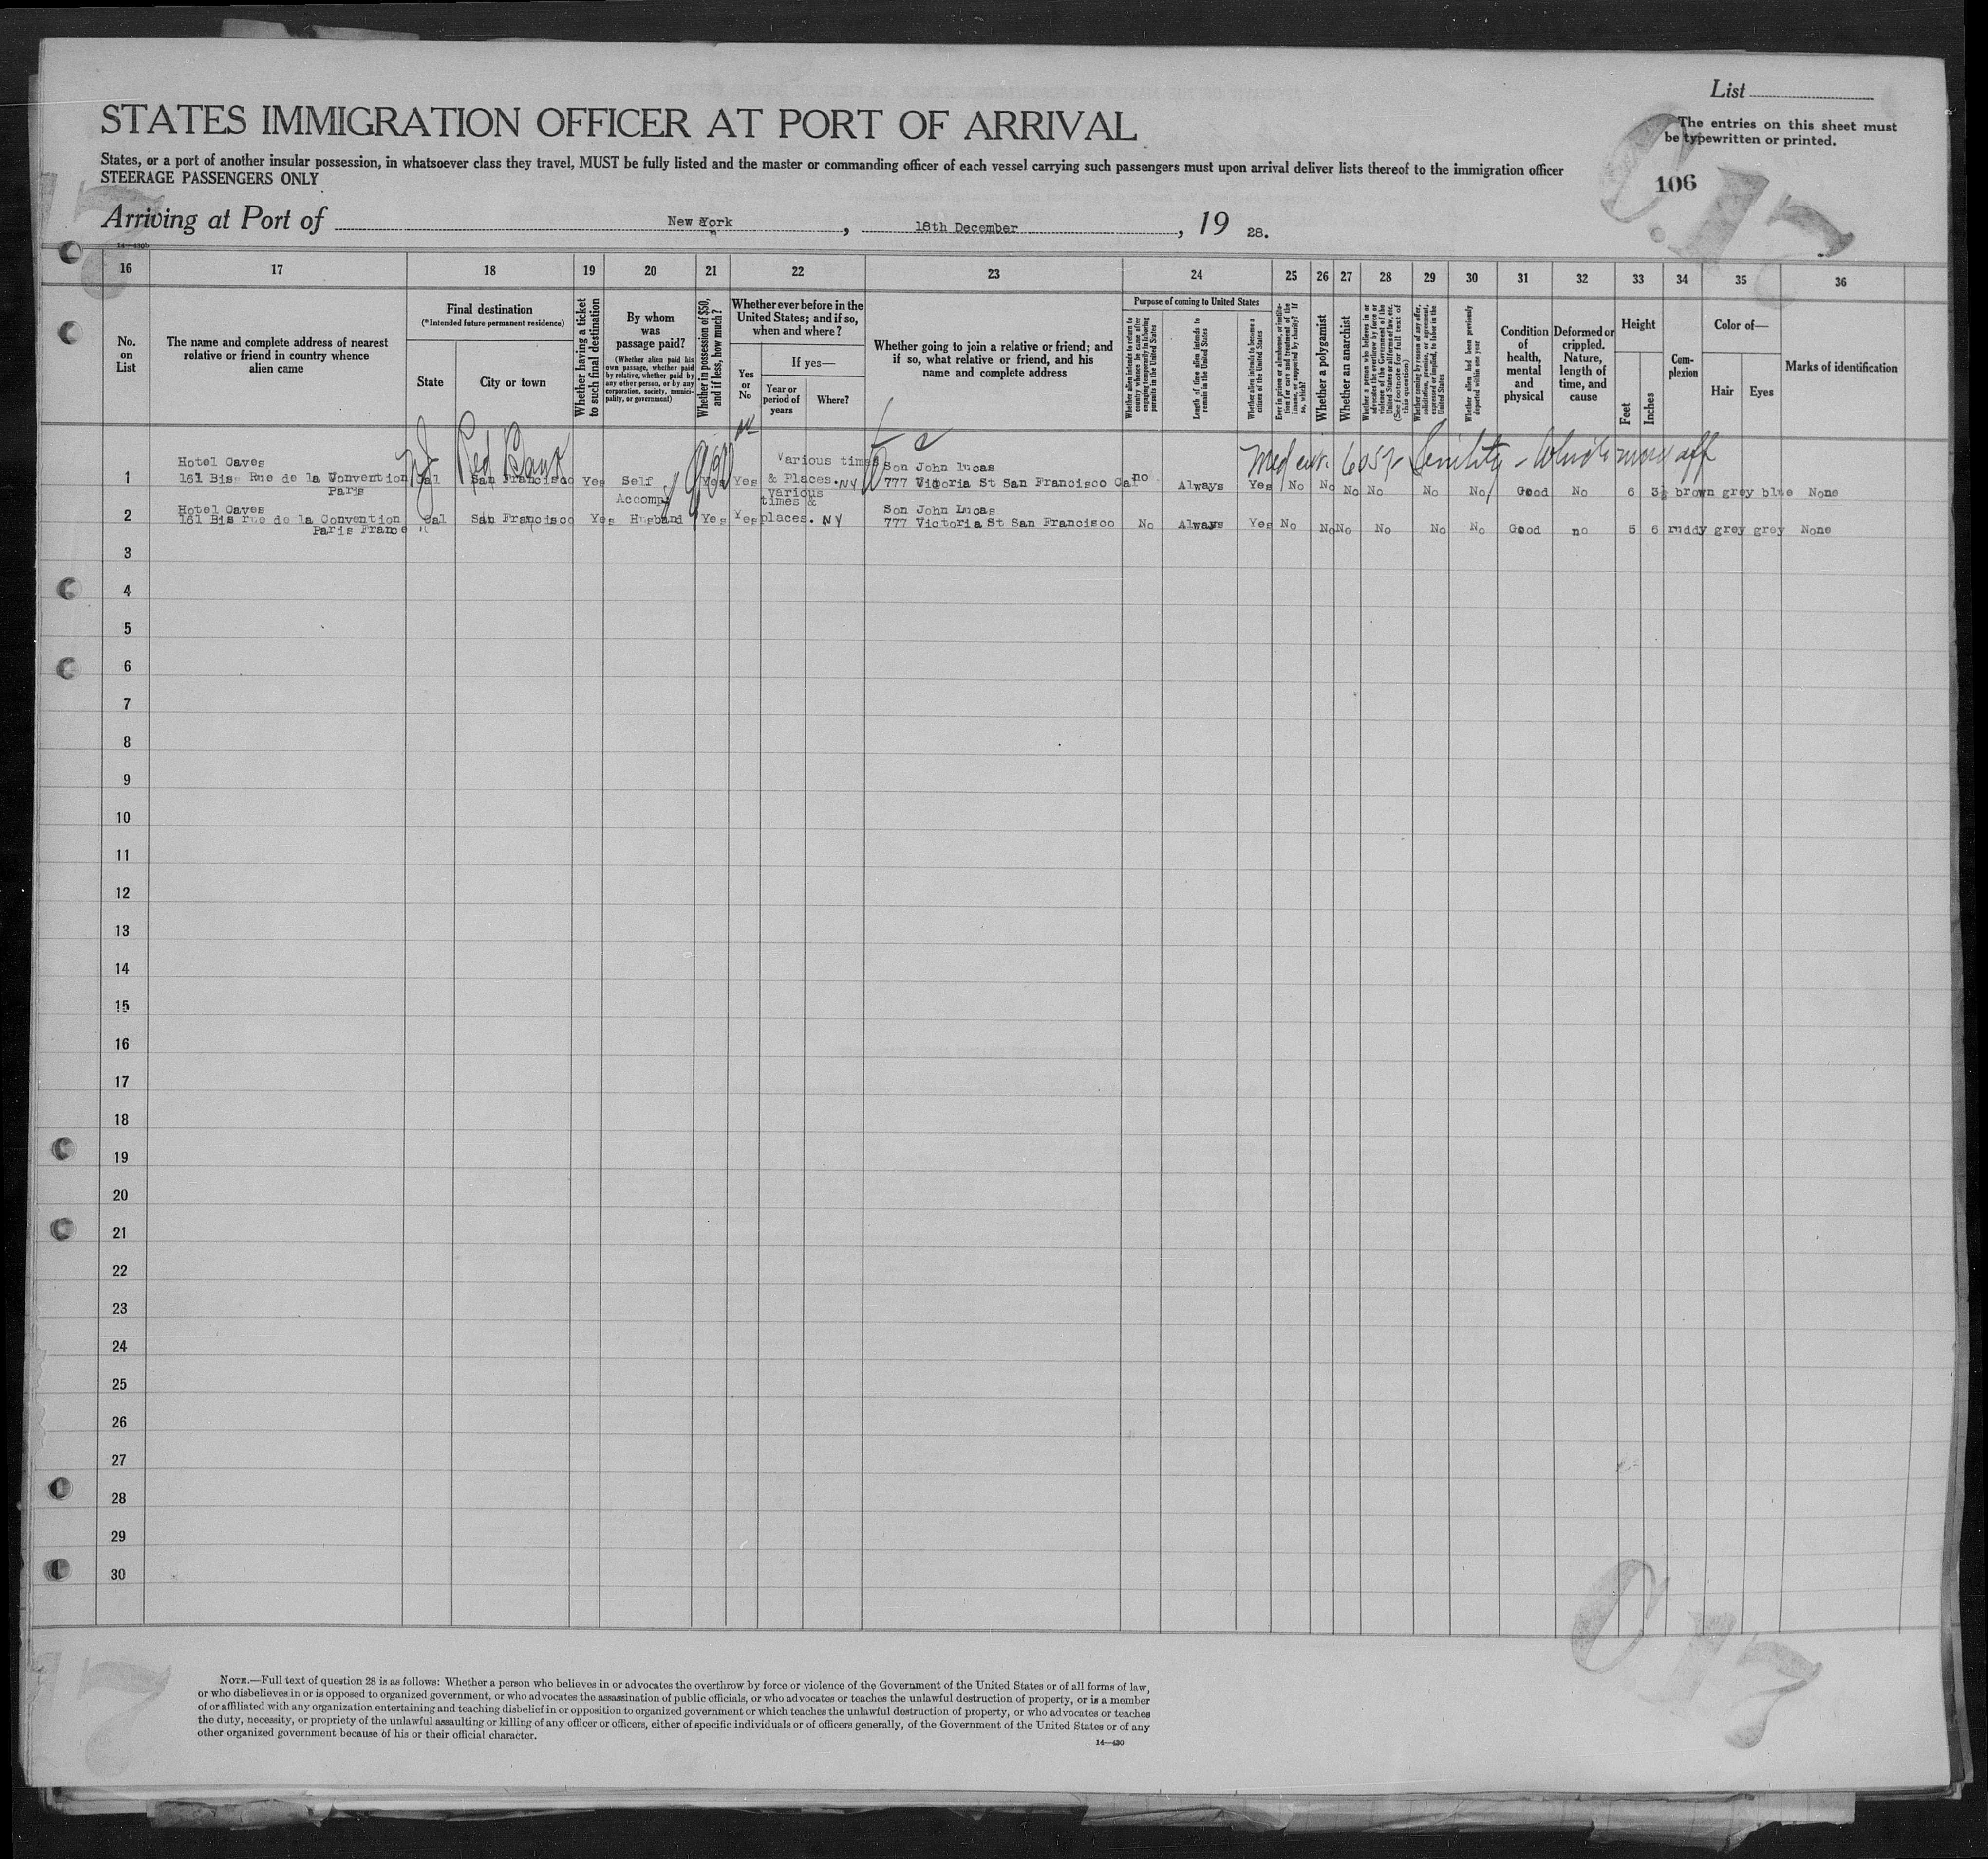 List
STATES IMMIGRATION OFFICER AT PORT OF ARRIVAL
The entries on this sheet must
be typewritten or printed.
States, or a port of another insular possession, in whatsoever class they travel, MUST be fully listed and the master or commanding officer of each vessel carrying such passengers must upon arrival deliver lists thereof to the immigration officer
STEERAGE PASSENGERS ONLY
106
C.17
Arriving at Port of New York, 18th December, 19 28.
16 17 18 19 20 21 22 23 24 25 26 27 28 29 30 31 32 33 34 35 36
No. on List
The name and complete address of nearest relative or friend in country whence alien came
Final destination
(*Intended future permanent residence)
State
City or town
Whether having a ticket to such final destination
By whom was passage paid?
(Whether alien paid his own passage, whether paid by relative, whether paid by any other person, or by any corporation, society, municipality, or government)
Whether in possession of $50, and if less, how much?
Whether ever before in the United States; and if so, when and where?
Yes or No
If yes—
Year or period of years
Where?
Whether going to join a relative or friend; and if so, what relative or friend, and his name and complete address
Purpose of coming to United States
Whether alien intends to return to country whence he came after engaging temporarily in laboring pursuits in the United States
Length of time alien intends to remain in the United States
Whether alien intends to become a citizen of the United States
Ever in prison or almshouse, or institution for care and treatment of the insane, or supported by charity? If so, which?
Whether a polygamist
Whether an anarchist
Whether a person who believes in or advocates the overthrow by force or violence of the Government of the United States or all forms of law, etc. (See footnote for full text of this question)
Whether coming by reason of any offer, solicitation, promise, or agreement, expressed or implied, to labor in the United States
Whether alien had been previously deported within one year
Condition of health, mental and physical
Deformed or crippled. Nature, length of time, and cause
Height
Feet
Inches
Complexion
Color of—
Hair
Eyes
Marks of identification
NJ Red Bank
Med cert. Senility
1 Hotel Caves
161 Bis Rue de la Convention
Paris
Cal San Francisco Yes Self Yes Yes Various times & Places. NY
Son John Lucas
777 Victoria St San Francisco Cal no Always Yes No No No No No No Good No 6 3½ brown grey blue None
2 Hotel Caves
161 Bis rue de la Convention
Paris France
Cal San Francisco Yes Accomp Husband Yes Yes various times & places. NY
Son John Lucas
777 Victoria St San Francisco No Always Yes No No No No No No Good no 5 6 ruddy grey grey None
3
4
5
6
7
8
9
10
11
12
13
14
15
16
17
18
19
20
21
22
23
24
25
26
27
28
29
30
C.17
NOTE.—Full text of question 28 is as follows: Whether a person who believes in or advocates the overthrow by force or violence of the Government of the United States or of all forms of law,
or who disbelieves in or is opposed to organized government, or who advocates the assassination of public officials, or who advocates or teaches the unlawful destruction of property, or is a member
of or affiliated with any organization entertaining and teaching disbelief in or opposition to organized government or which teaches the unlawful destruction of property, or who advocates or teaches
the duty, necessity, or propriety of the unlawful assaulting or killing of any officer or officers, either of specific individuals or of officers generally, of the Government of the United States or of any
other organized government because of his or their official character.
14—430